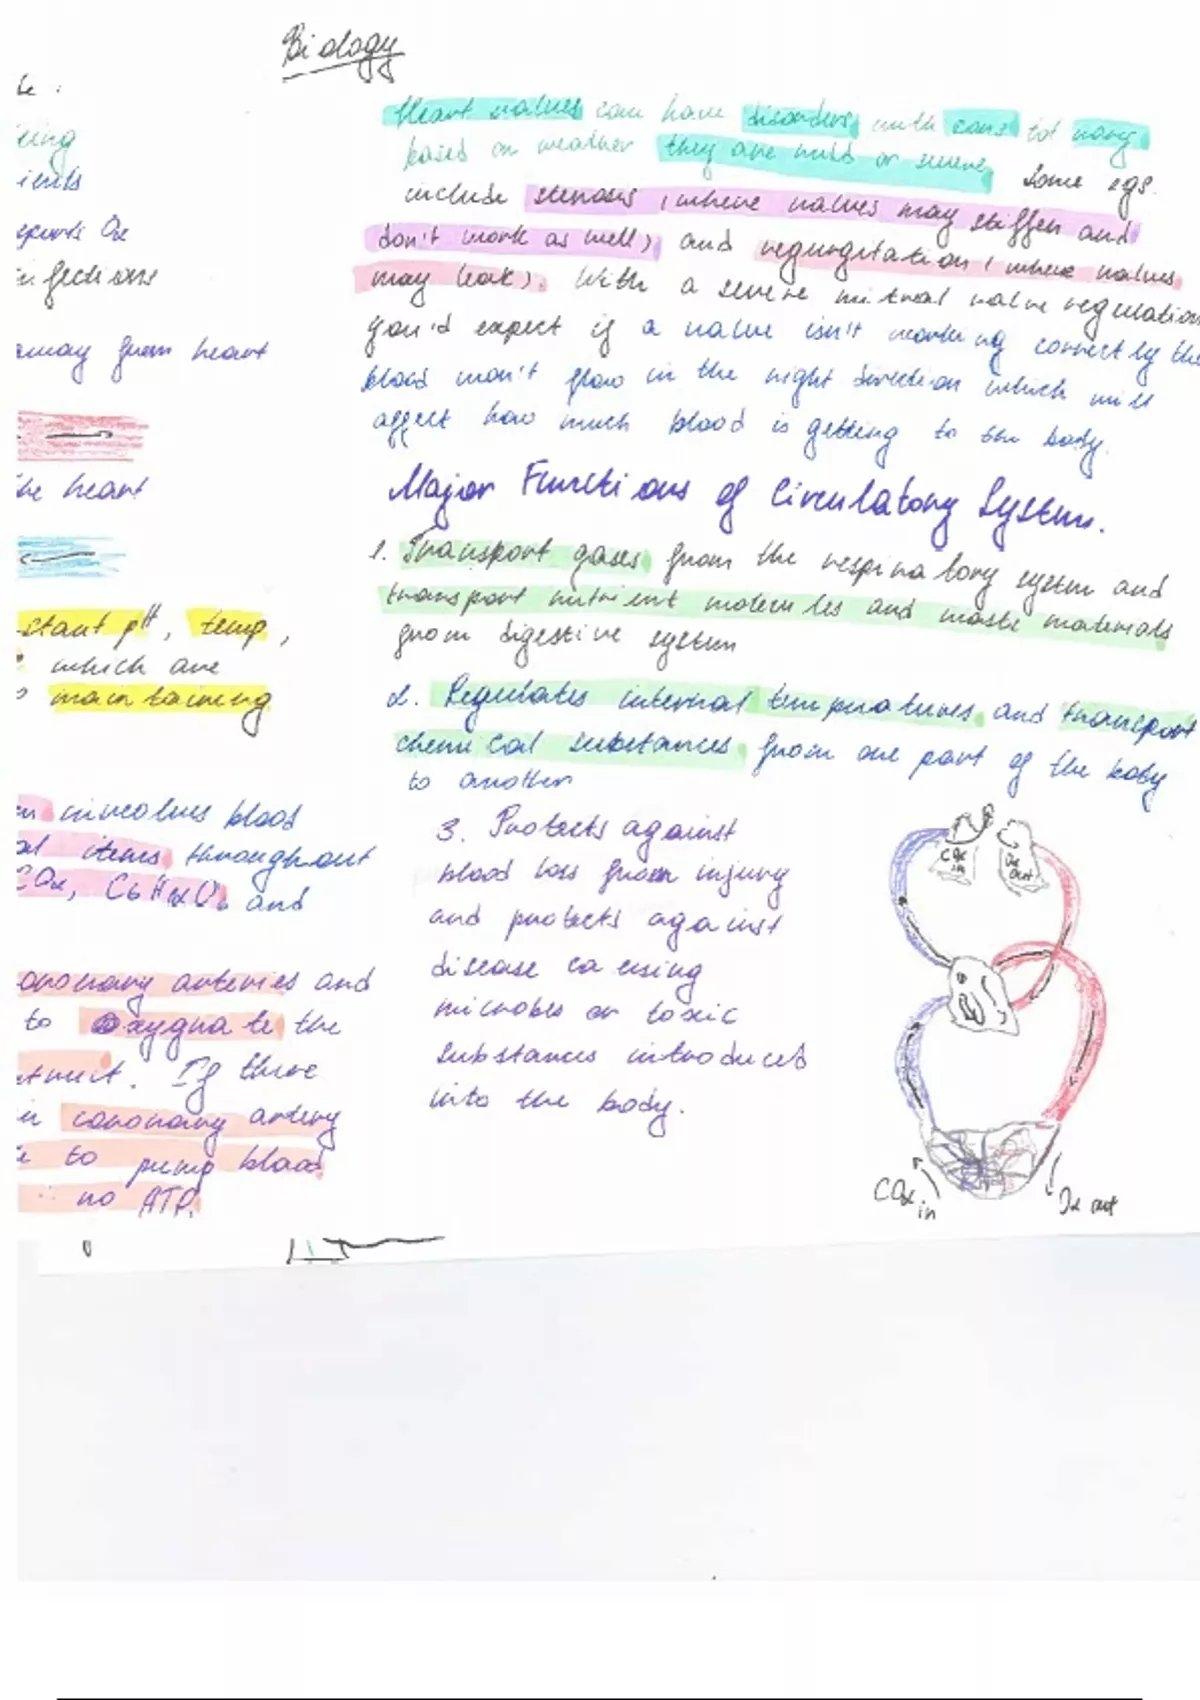 Biology
Heart valves can have disorders, with cons tot vary
based on weather they are mild or severe. Some egs.
include stenosis (where valves may stiffen and
don't work as well) and regurgitation (where valves
may leak). With a severe mitral valve regulation
you'd expect if a valve isn't working correctly the
blood won't flow in the right direction which will
affect how much blood is getting to the body.
Major Functions of Circulatory System.
1. Transport gases from the respiratory system and
transport nutrient molecules and waste materials
from digestive system
2. Regulates internal temperatures and transport
chemical substances from one part of the body
to another
3. Protects against
blood loss from injury
and protects against
disease causing
microbes or toxic
substances introduced
into the body.
CO2 in
O2 out
CO2 in
O2 out
ients
sports O2
infections
away from heart
the heart
stant pH, temp,
which are
maintaining
en involves blood
al items throughout
CO2, C6H12O6 and
oronary arteries and
to oxygnate the
If there
coronary artery
to pump blood
no ATP.